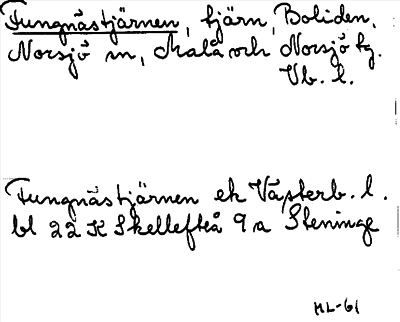 Tungnästjärnen, tjärn, Boliden,
Norsjö sn, Malå och Norsjö tg.
Vb. l.
Tungnästjärnen ek Västerb. l.
bl 22 K Skellefteå 9 a Steninge
ML-61